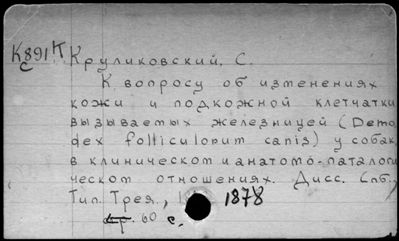 К891К Круликовский, С.
с
К вопросу об изменениях
кожи и подкожной клетчатки
вызываемых железницей (Demo,
dex folliculorum canis) у собак,
в клиническом и анатомо-паталоги
ческом отношениях. Дисс. Спб.,
Тип. Трея., 1878
стр. 60 с.